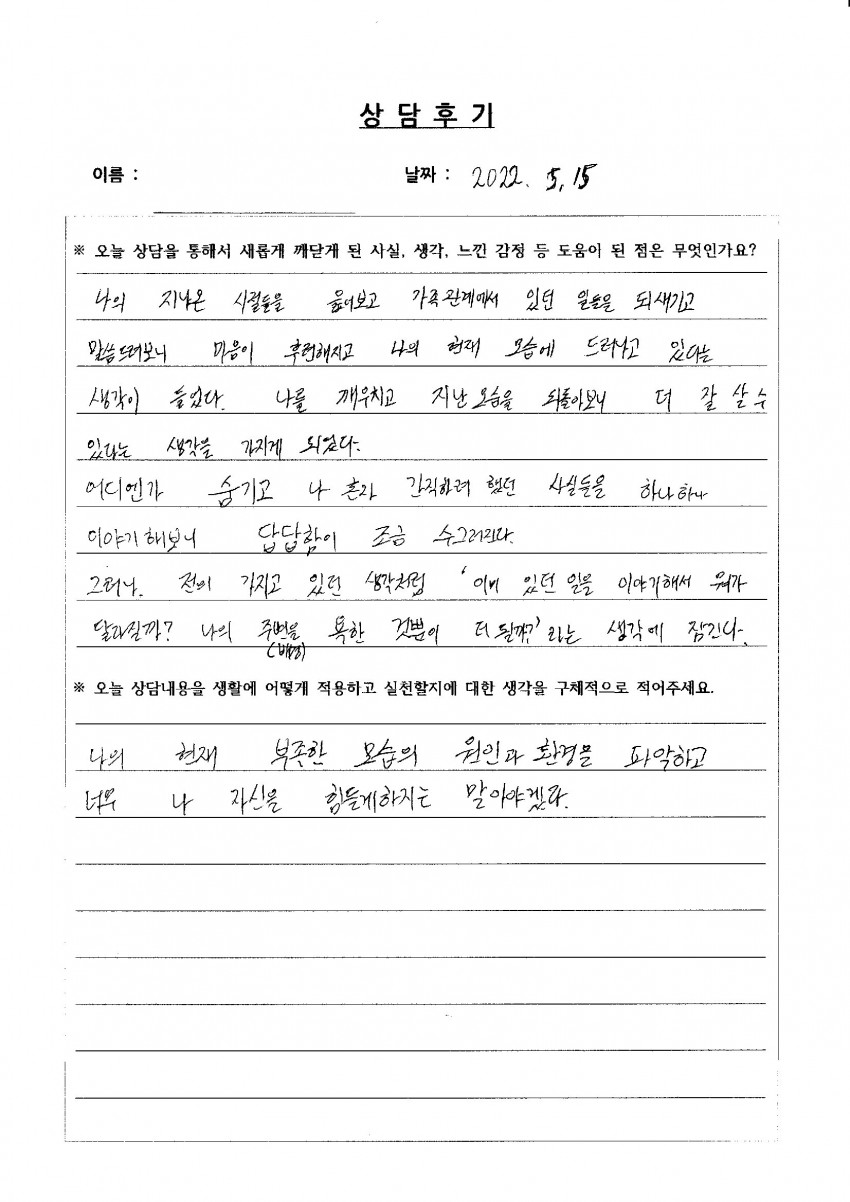 상담후기
이름 :
날짜 : 2022. 5, 15
※ 오늘 상담을 통해서 새롭게 깨닫게 된 사실, 생각, 느낀 감정 등 도움이 된 점은 무엇인가요?
나의 지나온 시절들을 읊어보고 가족관계에서 있던 일들을 되새기고
말씀드려보니 마음이 후련해지고 나의 현재 모습에 드러나고 있다는
생각이 들었다. 나를 깨우치고 지난모습을 되돌아보니 더 잘 살 수
있다는 생각을 가지게 되었다.
어디엔가 숨기고 나 혼자 간직하려 했던 사실들을 하나하나
이야기해보니 답답함이 조금 수그러진다.
그러나. 전에 가지고 있던 생각처럼 '이미 있던 일을 이야기해서 뭐가
달라질까? 나의 주변을 욕한 것뿐이 더 될까?' 라는 생각에 잠긴다.
(배경)
※ 오늘 상담내용을 생활에 어떻게 적용하고 실천할지에 대한 생각을 구체적으로 적어주세요.
나의 현재 부족한 모습의 원인과 환경을 파악하고
너무 나 자신을 힘들게하지는 말아야겠다.